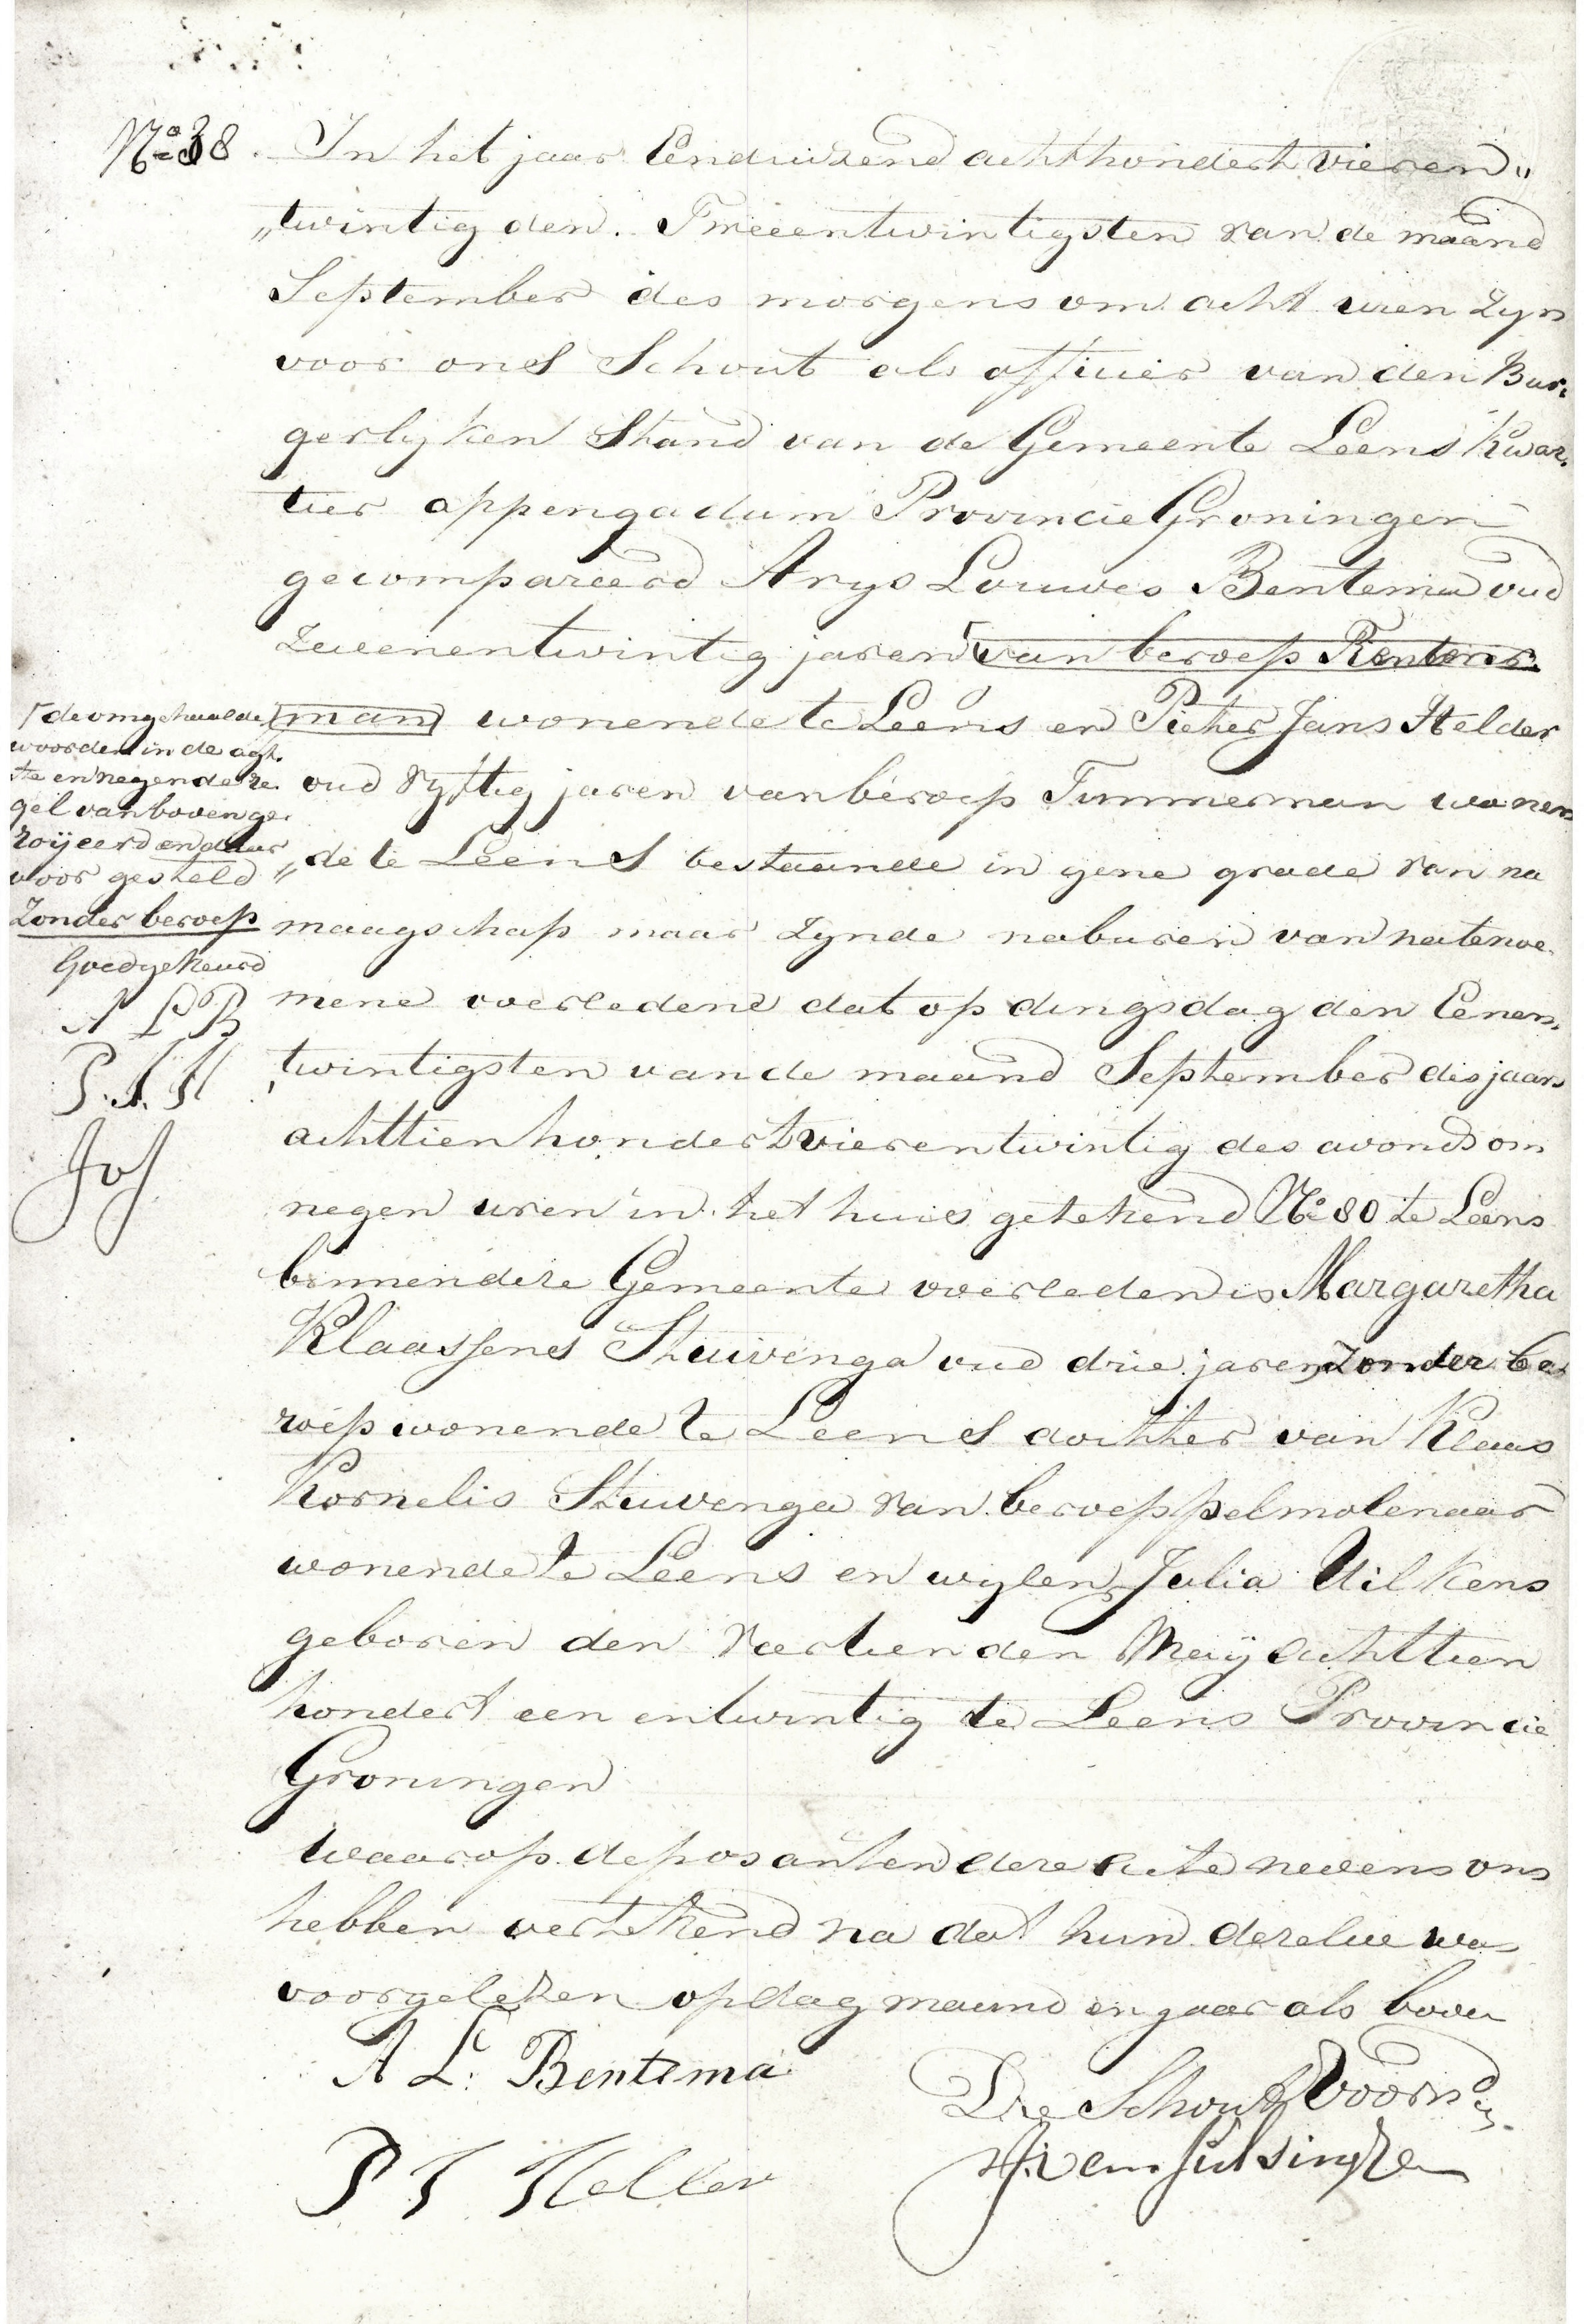 No. 38. In het jaar Eenduizend achthondert vieren„
„twintig den. Tweeentwintigsten van de maand
September des morgens om acht uren zyn
voor ons Schout als officier van den Bur„
gerlyken Stand van de Gemeente Leens Kwar„
tier appengadam Provincie Groningen
gecompareerd Arys Louwes Bentema oud
zevenentwintig jaren van beroep Rentenr
man wonende te Leens en Pieter Jans Helder
oud vyftig jaren van beroep Timmerman wonen
„de te Leens bestaande in gene grade van na
maagschap maar zynde naburen van natenoe„
mene overledene dat op dingsdag den Eenen„
twintigsten van de maand September des jaars
achttienhondert vierentwintig des avonds om
negen uren in het huis getekend No. 80 te Leens
binnen deze Gemeente overleden is Margaretha
Klaassens Stuivenga oud drie jaren zonder be
roep wonende te Leens dochter van Klaas
Kornelis Stuvenga van beroep pelmolenaar
wonende te Leens en wylen Julia Uilkens
geboren den veertienden Meij achttien
hondert een entwintig te Leens Provincie
Groningen
waarop deposanten deze acte nevens ons
hebben vertekend na dat hun dezelve was
voorgelezen op dag maand en jaar als boven
de omgehaalde
woorden in de agt„
ste en negende re„
gel van boven ge„
roijeerd en daar
voor gesteld
Zonder beroep
Goedgekeurd
A L B
P. J. H
A L. Bentema
P J Helder
De Schout Voorn